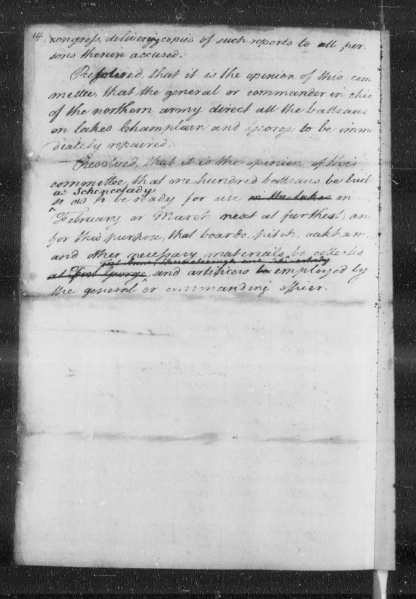 14.
congress, delivering copies of such reports to all per-
sons therein accused.
Resolved, that it is the opinion of this com
mittee that the general or commander in chie
of the northern army direct all the batteaus
on lakes Champlain and George to be imm
diately repaired.
Resolved, that it is the opinion of this
committee, that one hundred batteaus be buil
at Schenectady
so as to be ready for use on the lakes in
February or March next at furthest, an
for this purpose, that boards, pitch, oakham,
and other necessary materials be collected
at Fort George and artificers be employed by
the general or commanding officer.